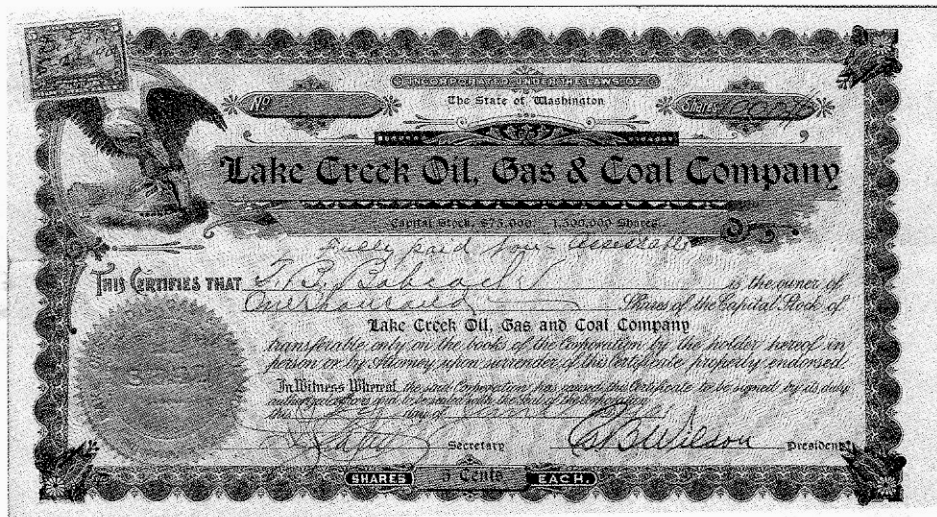 INCORPORATED UNDER THE LAWS OF
No
The State of Washington
Shares
Lake Creek Oil, Gas & Coal Company
Capital Stock, $75,000 1,500,000 Shares
Fully paid Non-assessable
THIS CERTIFIES THAT T. B. Babcock is the owner of
One thousand Shares of the Capital Stock of
Lake Creek Oil, Gas and Coal Company
transferable only on the books of the Corporation by the holder hereof in
person or by Attorney upon surrender of this Certificate properly endorsed.
In Witness Whereof, the said Corporation has caused this Certificate to be signed by its duly
authorized officers and to be sealed with the Seal of the Corporation
this day of June
Secretary C B Wilson President
SHARES 5 Cents EACH.